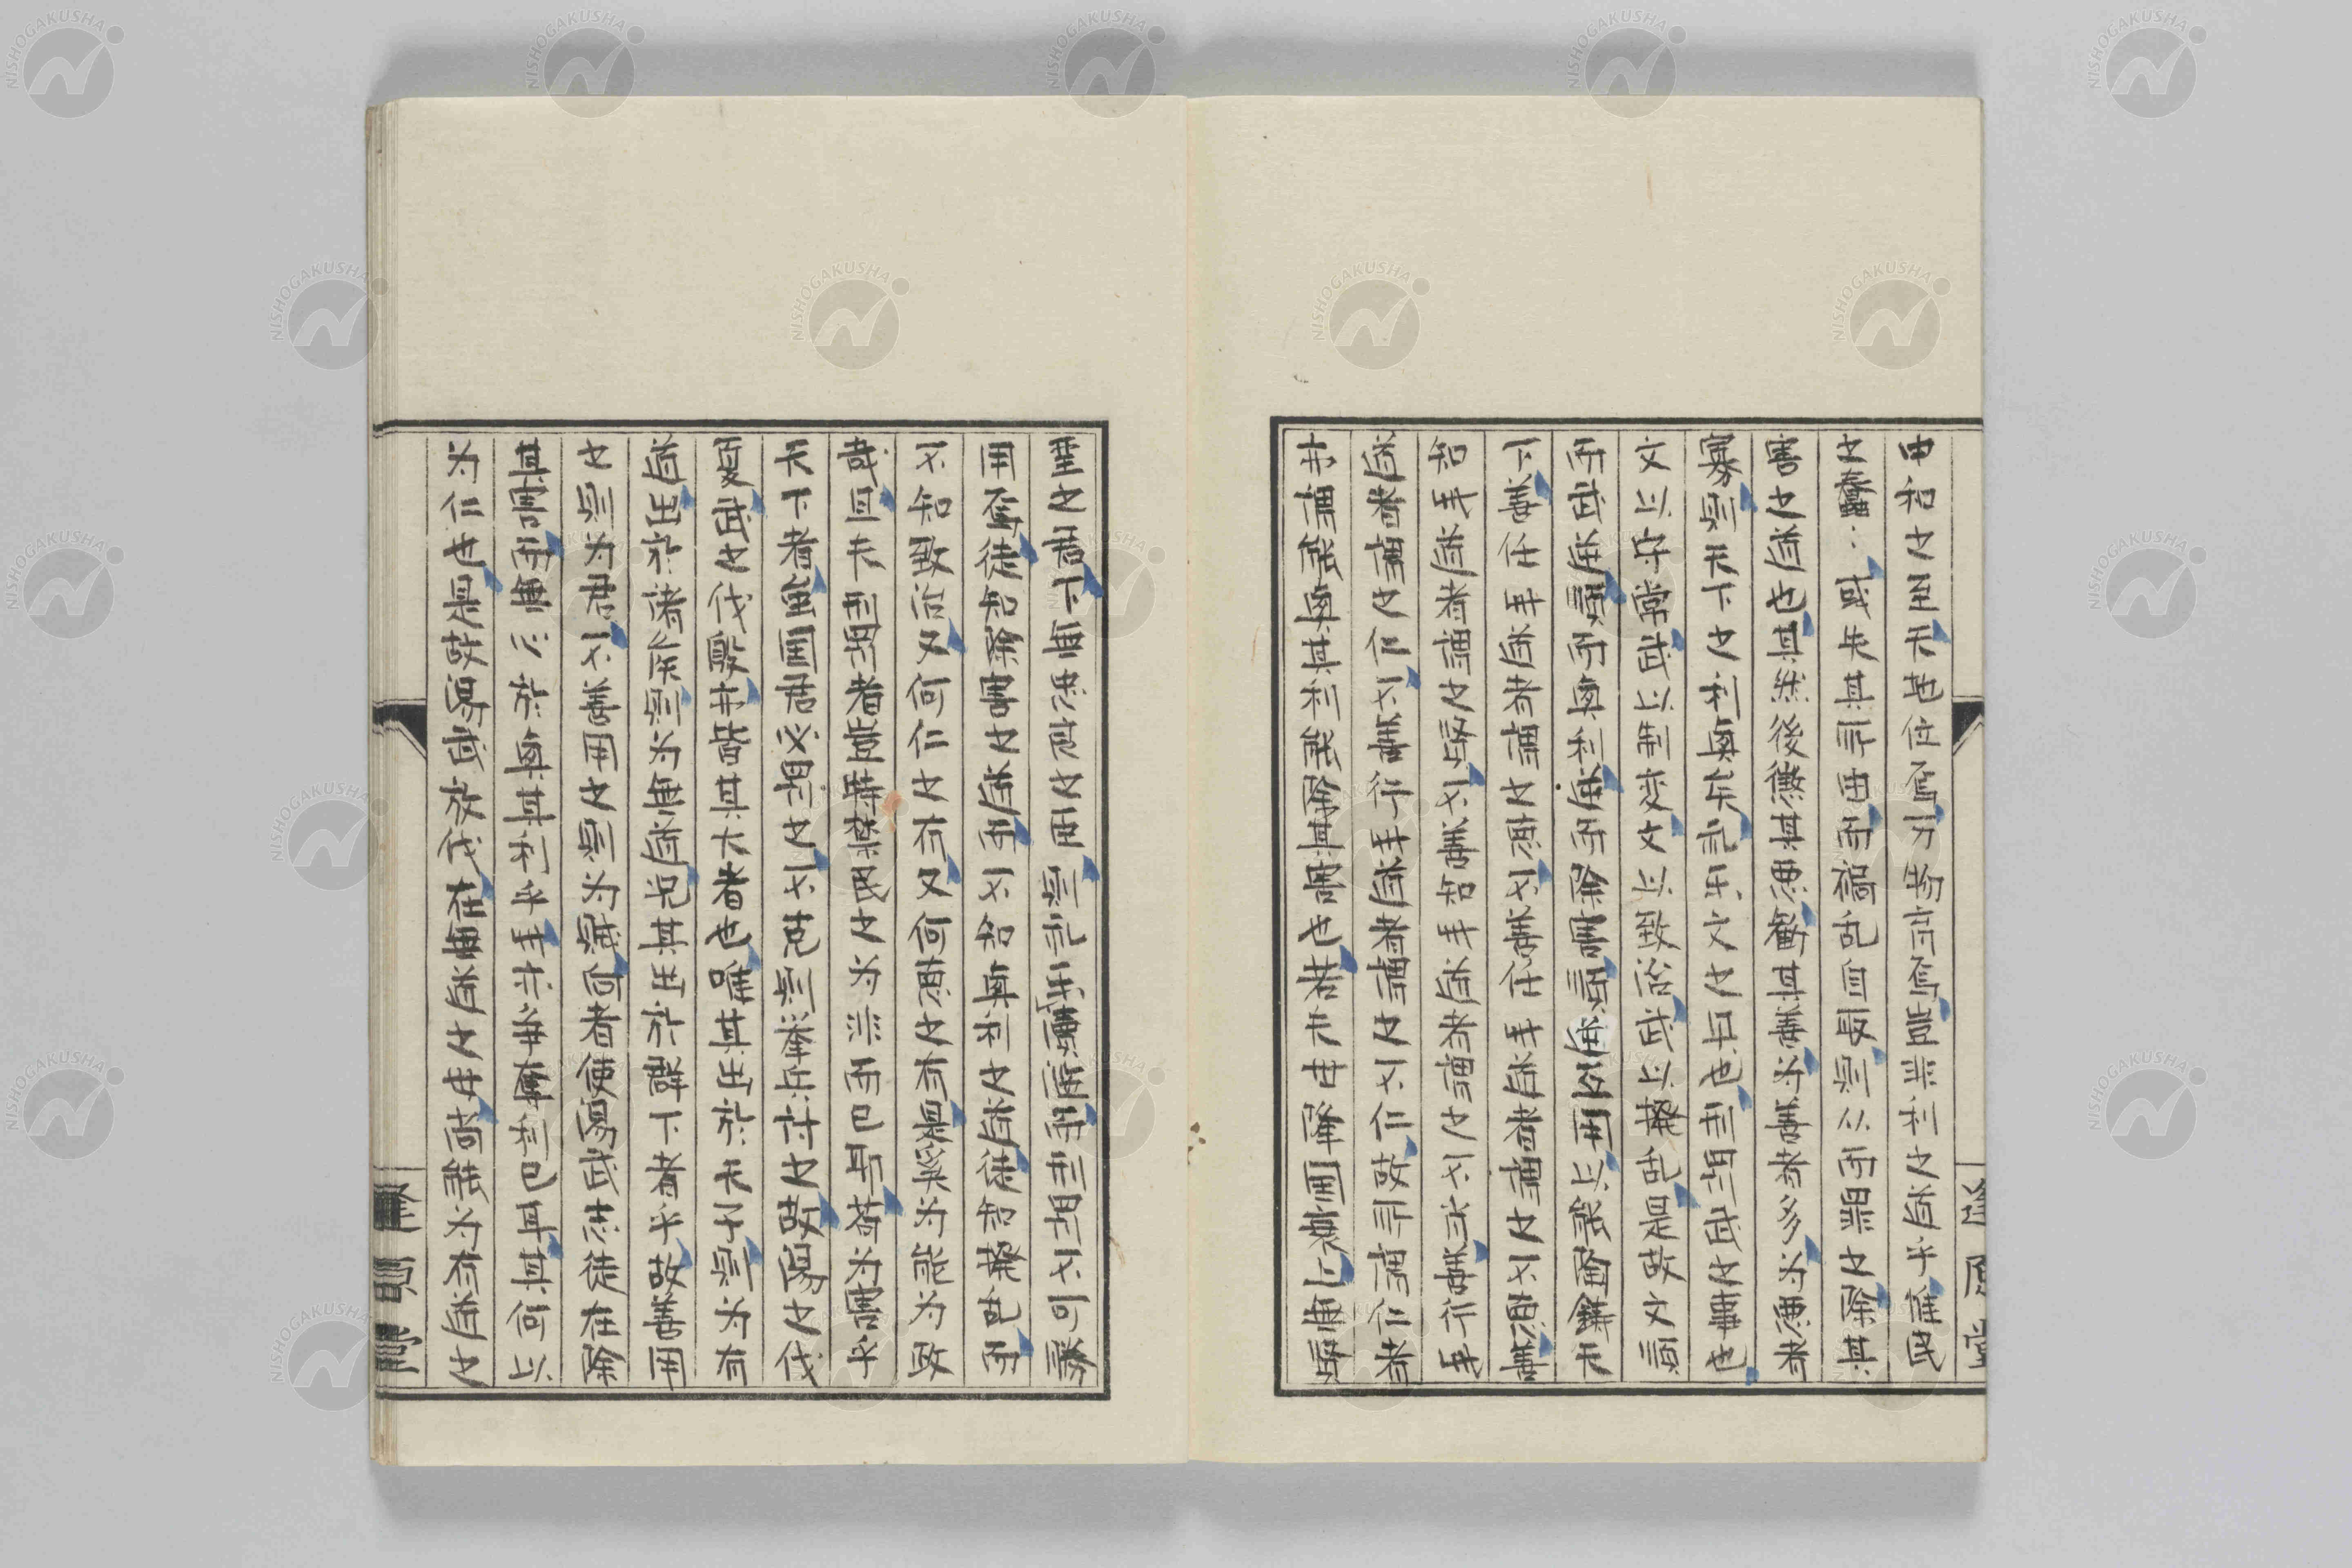 中和之至天地位焉万物育焉豈非利之道乎唯民
之蠢〻或失其所由而禍乱自取則从而罪之除其
害之道也其然後懲其悪勧其善为善者多为悪者
寡則天下之利興矣礼乐文之具也刑罰武之事也
文以守常武以制変文以致治武以撥乱是故文順
而武逆順而興利逆而除害順逆必用以能陶鋳天
下善任我道者謂之恵不善任我道者謂之不恵善
知我道者謂之賢不善知我道者謂之不善行我
道者謂之仁不善行我道者謂之不仁故所謂仁者
亦謂能興其利能除其害也若夫中葉国衰上無賢
聖之君下無忠良之臣則礼乐壊廃而刑罰不可勝
用焉徒知除害之道而不知興利之道徒知撥乱而
不知致治又何仁之有又何恵之有是奚为能为政
哉且夫刑罰者豈特禁民之为非而已耶苟为害乎
天下者虽国君必罰之不克則挙兵討之故湯之伐
夏武之伐殷亦皆其大者也唯其出於天子則为有
道出於諸侯則为無道況其出於群下者乎故善用
之則为君不善用之則为賊向者使湯武徒在除
其害而無心於興其利乎我亦奪利已耳其何以
为仁也是故湯武放伐在無道之世尚能为有道之